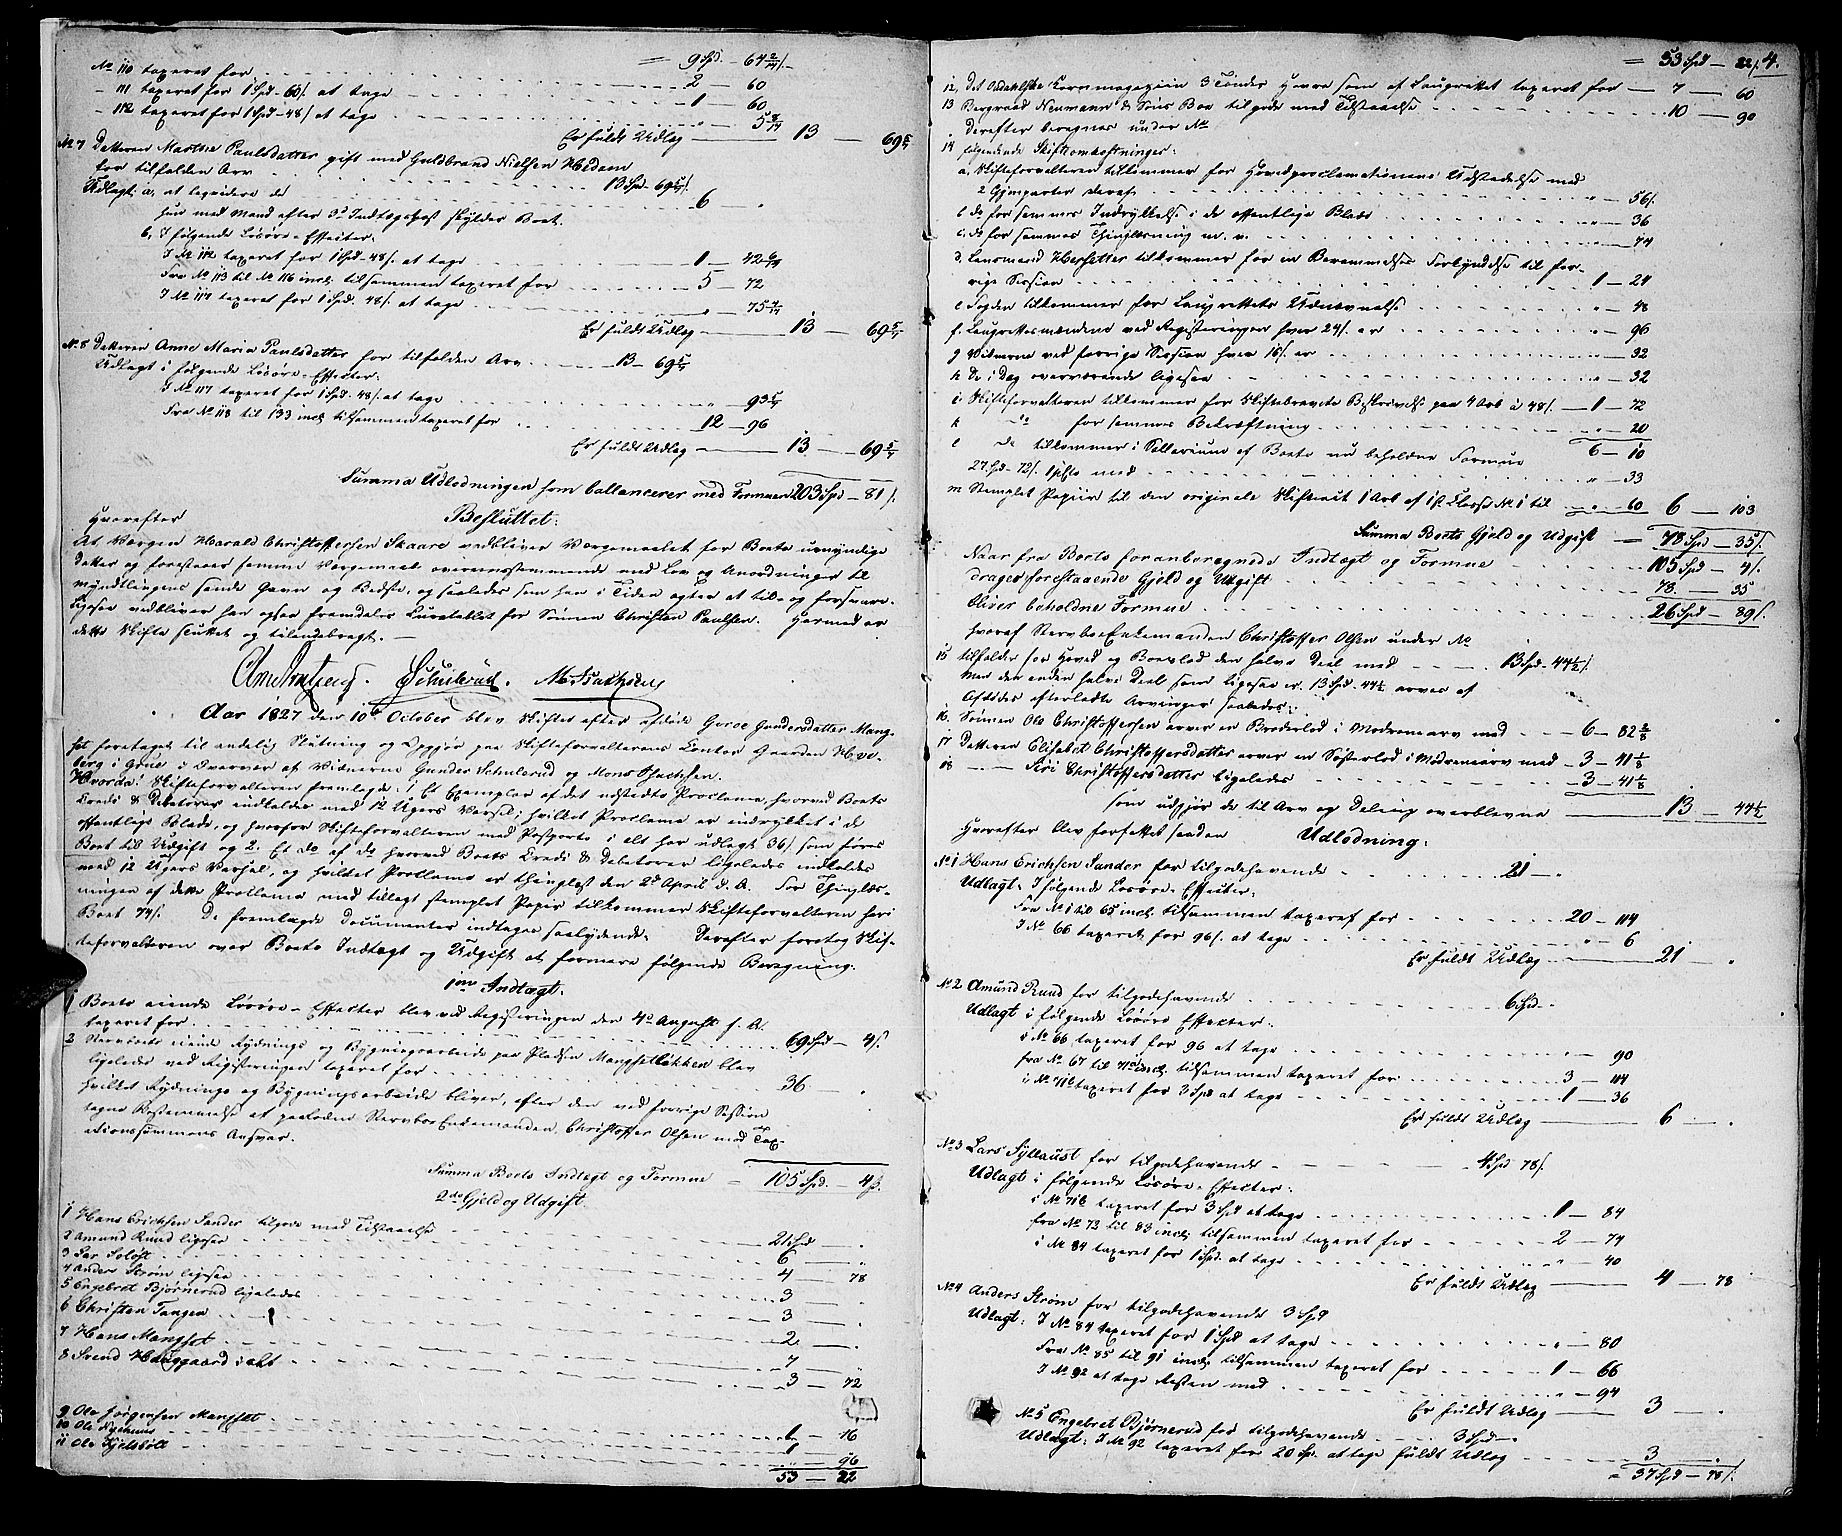 = 9 Spd. — 64 2/7 /.
No 110 taxeret for 2 — 60
- 111 taxeret for 1 Spd - 60 /. at tage 1 — 60
- 112 taxeret for 1 Spd - 48 /. at tage " — 5 8/14
Er fuldt Udlæg 13 — 69 5/7
No 7 Datteren Marthe Paulsdatter gift med Guldbrand Nielsen Hedom
for tilfalden Arv 13 Spd - 69 5/7 /.
Udlagt: a, at liqvidere de 6 — "
hun med Mand efter 3d Indtægtspost skylder Boet.
b, I følgende Løsøre-Effecter:
I No 112 taxeret for 1 Spd - 48 /. at tage 1 — 42 6/14
Fra No 113 til No 116 incl. tilsammen taxeret for 5 — 72
I No 117 taxeret for 1 Spd. 48 /. at tage " — 75 4/14
Er fuldt Udlæg 13 — 69 5/7
No. 8 Datteren Anne Maria Paulsdatter for tilfalden Arv 13 - 69 5/7
Udlagt i følgende Løsøre-Effecter:
I No 117 taxeret for 1 Spd. 48 /. at tage " — 93 5/7
Fra No 118 til 133 incl. tilsammen taxeret for 12 — 96
Er fuldt Udlæg 13 — 69 5/7
Summa Udlodningen som ballancerer med Formuen 203 Spd — 81 /.
Hvorefter Besluttet:
At Værgen Harald Christoffersen Skaare vedbliver Værgemaalet for Boets umyndige
Datter og forestaaer samme Værgemaal overeensstemmende med Lov og Anordninger til
Myndlingens sande Gavn og Bedste, og saaledes som han i Tiden agter at til- og forsvare.
Ligesaa vedbliver han ogsaa fremdeles Curatelet for Sønnen Christen Paulsen. Hermed er
dette Skifte sluttet og tilendebragt.
Schulerud. M. Isachsen
Aar 1827 den 10de October blev Skiftet efter afdøde Goroe Gundersdatter Mang-
set foretaget til endelig Slutning og Opgjør paa Skifteforvalterens Contor Gaarden Hve-
berg i Grue i Overvær af Vitnerne Gunder Schulerud og Mons Isachsen.
Hvorda: Skifteforvalteren fremlagde: 1 Et Exemplar af det udstædte Proclama, hvorved Boets
Credit & Debitorer indkaldes med 12 Ugers Varsel; hvilket Proclama er indrykket i de
offentlige Blade, og hvorfor Skifteforvalteren med Postporto i alt har udlagt 36 /. som føres
Boet til Udgift og 2. Et do af do hvorved Boets Credit & Debitorer ligeledes indkaldes
med 12 Ugers Varsel, og hvilket Proclama er thinglæst den 2d April d. A. For Thinglæs-
ningen af dette Proclama med tillagt stemplet Papir tilkommer Skifteforvalteren hos
Boet 74 /. De fremlagde Documenter indtages saalydende. Derefter foretog Skif-
teforvalteren over Boets Indtægt og Udgift at formere følgende Beregning:
1mo Indtægt.
1 Boets eiende Løsøre-Effecter blev ved Registeringen den 4de August f. A.
taxeret for 69 Spd — 4 /.
2 Stervboets eiende Rydnings og Bygningsarbeide paa Pladsen Mangsetløkken blev
ligeledes ved Registeringen taxeret for 36 "
hvilket Rydnings og Bygningsarbeide bliver, efter den ved forrige Session
tagne Bestemmelse at paalodne Stervbo Enkemanden Christoffer Olsen med Tax-
ationssummens Ansvar.
Summa Boets Indtægt og Formue = 105 Spd. — 4 /.
2do Gjeld og Udgift.
1 Hans Erichsen Sander tilgode med Tilstaaelse 21 Spd "
2 Amund Ruud ligesaa 6 — "
3 Lar Soløst 4 — 78
4 Anders Strøm ligesaa 3 — "
5 Engebret Bjørnerud ligeledes 3 — "
6 Christen Tangen 2 — "
7 Hans Mangset 7 — "
8 Svend Haaggaard i alt 3 — 72
9 Ole Jørgensen Mangset 1 — 16
10 Ole 1
11 Ole Kjelsbøll " — 96
53 — 22
= 53 Spd — 22 /. 4.
12, Det Odalske Kornmagazin 3 Tønder Havre som af Laugrettet taxeret for — 7 — 60
13 Bergraad Neumann & Søns Boe tilgode med Tilstaaelse 10 — 90
Derefter beregnes under No
14 følgende Skifteomkostninger:
a, Skifteforvalteren tilkommer for Hovedproclamationens Udstædelse med
2 Gjenparter deraf " — 56 /.
b do for sammes Indrykkelse i de offentlige Blade " — 36
c, do for sammes Thinglæsning m. v. " — 74
d. Lensmand Herfætter tilkommer for en Berammelses Forkyndelse til for-
rige Session 1 — 24
e Fogden tilkommer for Laugrettets Udnævnelse " — 48
f. Laugrettesmændene ved Registeringen hver 24 /. er " — 96
g Vitnerne ved forrige Session hver 16 /. er " — 32
h De i Dag overværende ligesaa " — 32
i Skifteforvalteren tilkommer for Skiftebrevets Beskrivelse paa 4 Ark à 48 /. — 1 — 72
k do for sammes Bekræftning " — 20
l do tilkommer i Sallarium af Boets nu beholdne Formue 6 — 10
27 Spd - 72 /. 1 pCto med " — 33
m Stemplet Papiir til den originale Skifteact 1 Ark af 1ste Classe No 1 til " — 60 6 — 103
Summa Boets Gjeld og Udgift — 78 Spd — 35 /.
Naar fra Boets foranberegnede Indtægt og Formue 105 Spd — 4 /.
drages forestaaende Gjeld og Udgift 78. — 35
bliver beholdne Formue 26 Spd — 89 /.
hvoraf Stervbo Enkemanden Christoffer Olsen under No
15 tilfalder for Hoved og Boeslod den halve Deel med 13 Spd - 44 1/2 /.
Men den anden halve Deel som ligesaa er 13 Spd. 44 1/2 arves af
Afdødes efterladte Arvinger saaledes:
16. Sønnen Ole Christoffersen arver en Broderlod i Mødrenearv med 6 — 82 2/8
17 Datteren Elisabet Christoffersdatter arver en Søsterlod i Mødrenearv med — 3 — 41 1/8
18 — Siri Christoffersdatter ligeledes 3 — 41 1/8
som udgjør de til Arv og Deling overblevne 13 — 44 1/2
Hvorefter blev forfattet saadan Udlodning:
No 1 Hans Erichsen Sander for tilgodehavende 21 — "
Udlagt: I følgende Løsøre-Effecter:
Fra No 1 til 65 incl. tilsammen taxeret for 20 — 114
I No 66 taxeret for 96 /. at tage " — 6
Er fuldt Udlæg 21 "
No 2 Amund Ruud for tilgodehavende 6 Spd "
Udlagt i følgende Løsøre Effecter:
i No 66 taxeret for 96 at tage " — 90
fra No 67 til 71a incl. tilsammen taxeret for 3 — 114
i No 71b taxeret for 3 Spd at tage 1 — 36
Er fuldt Udlæg 6 — "
No 3 Lars Syllaust for tilgodehavende 4 Spd 78 /.
Udlagt i følgende Løsøre-Effecter:
i No 71b taxeret for 3 Spd at tage 1 — 84
fra No 72 til 83 incl. tilsammen taxeret for 2 — 74
i No 84 taxeret for 1 Spd. at tage " — 40
Er fuldt Udlæg 4 — 78
No 4 Anders Strøm for tilgodehavende 3 Spd
Udlagt: I No 84 taxeret for 1 Spd at tage " — 80
Fra No 85 til 91 incl. tilsammen taxeret for 1 — 66
I No 92 at tage Resten med " — 94
Er fuldt Udlæg 3 — "
No 5 Engebret Bjørnerud for tilgodehavende 3 Spd
Udlagt: I No 92 taxeret for 20 Sp. at tage fuldt Udlæg 3 "
= 37 Spd — 78 /.